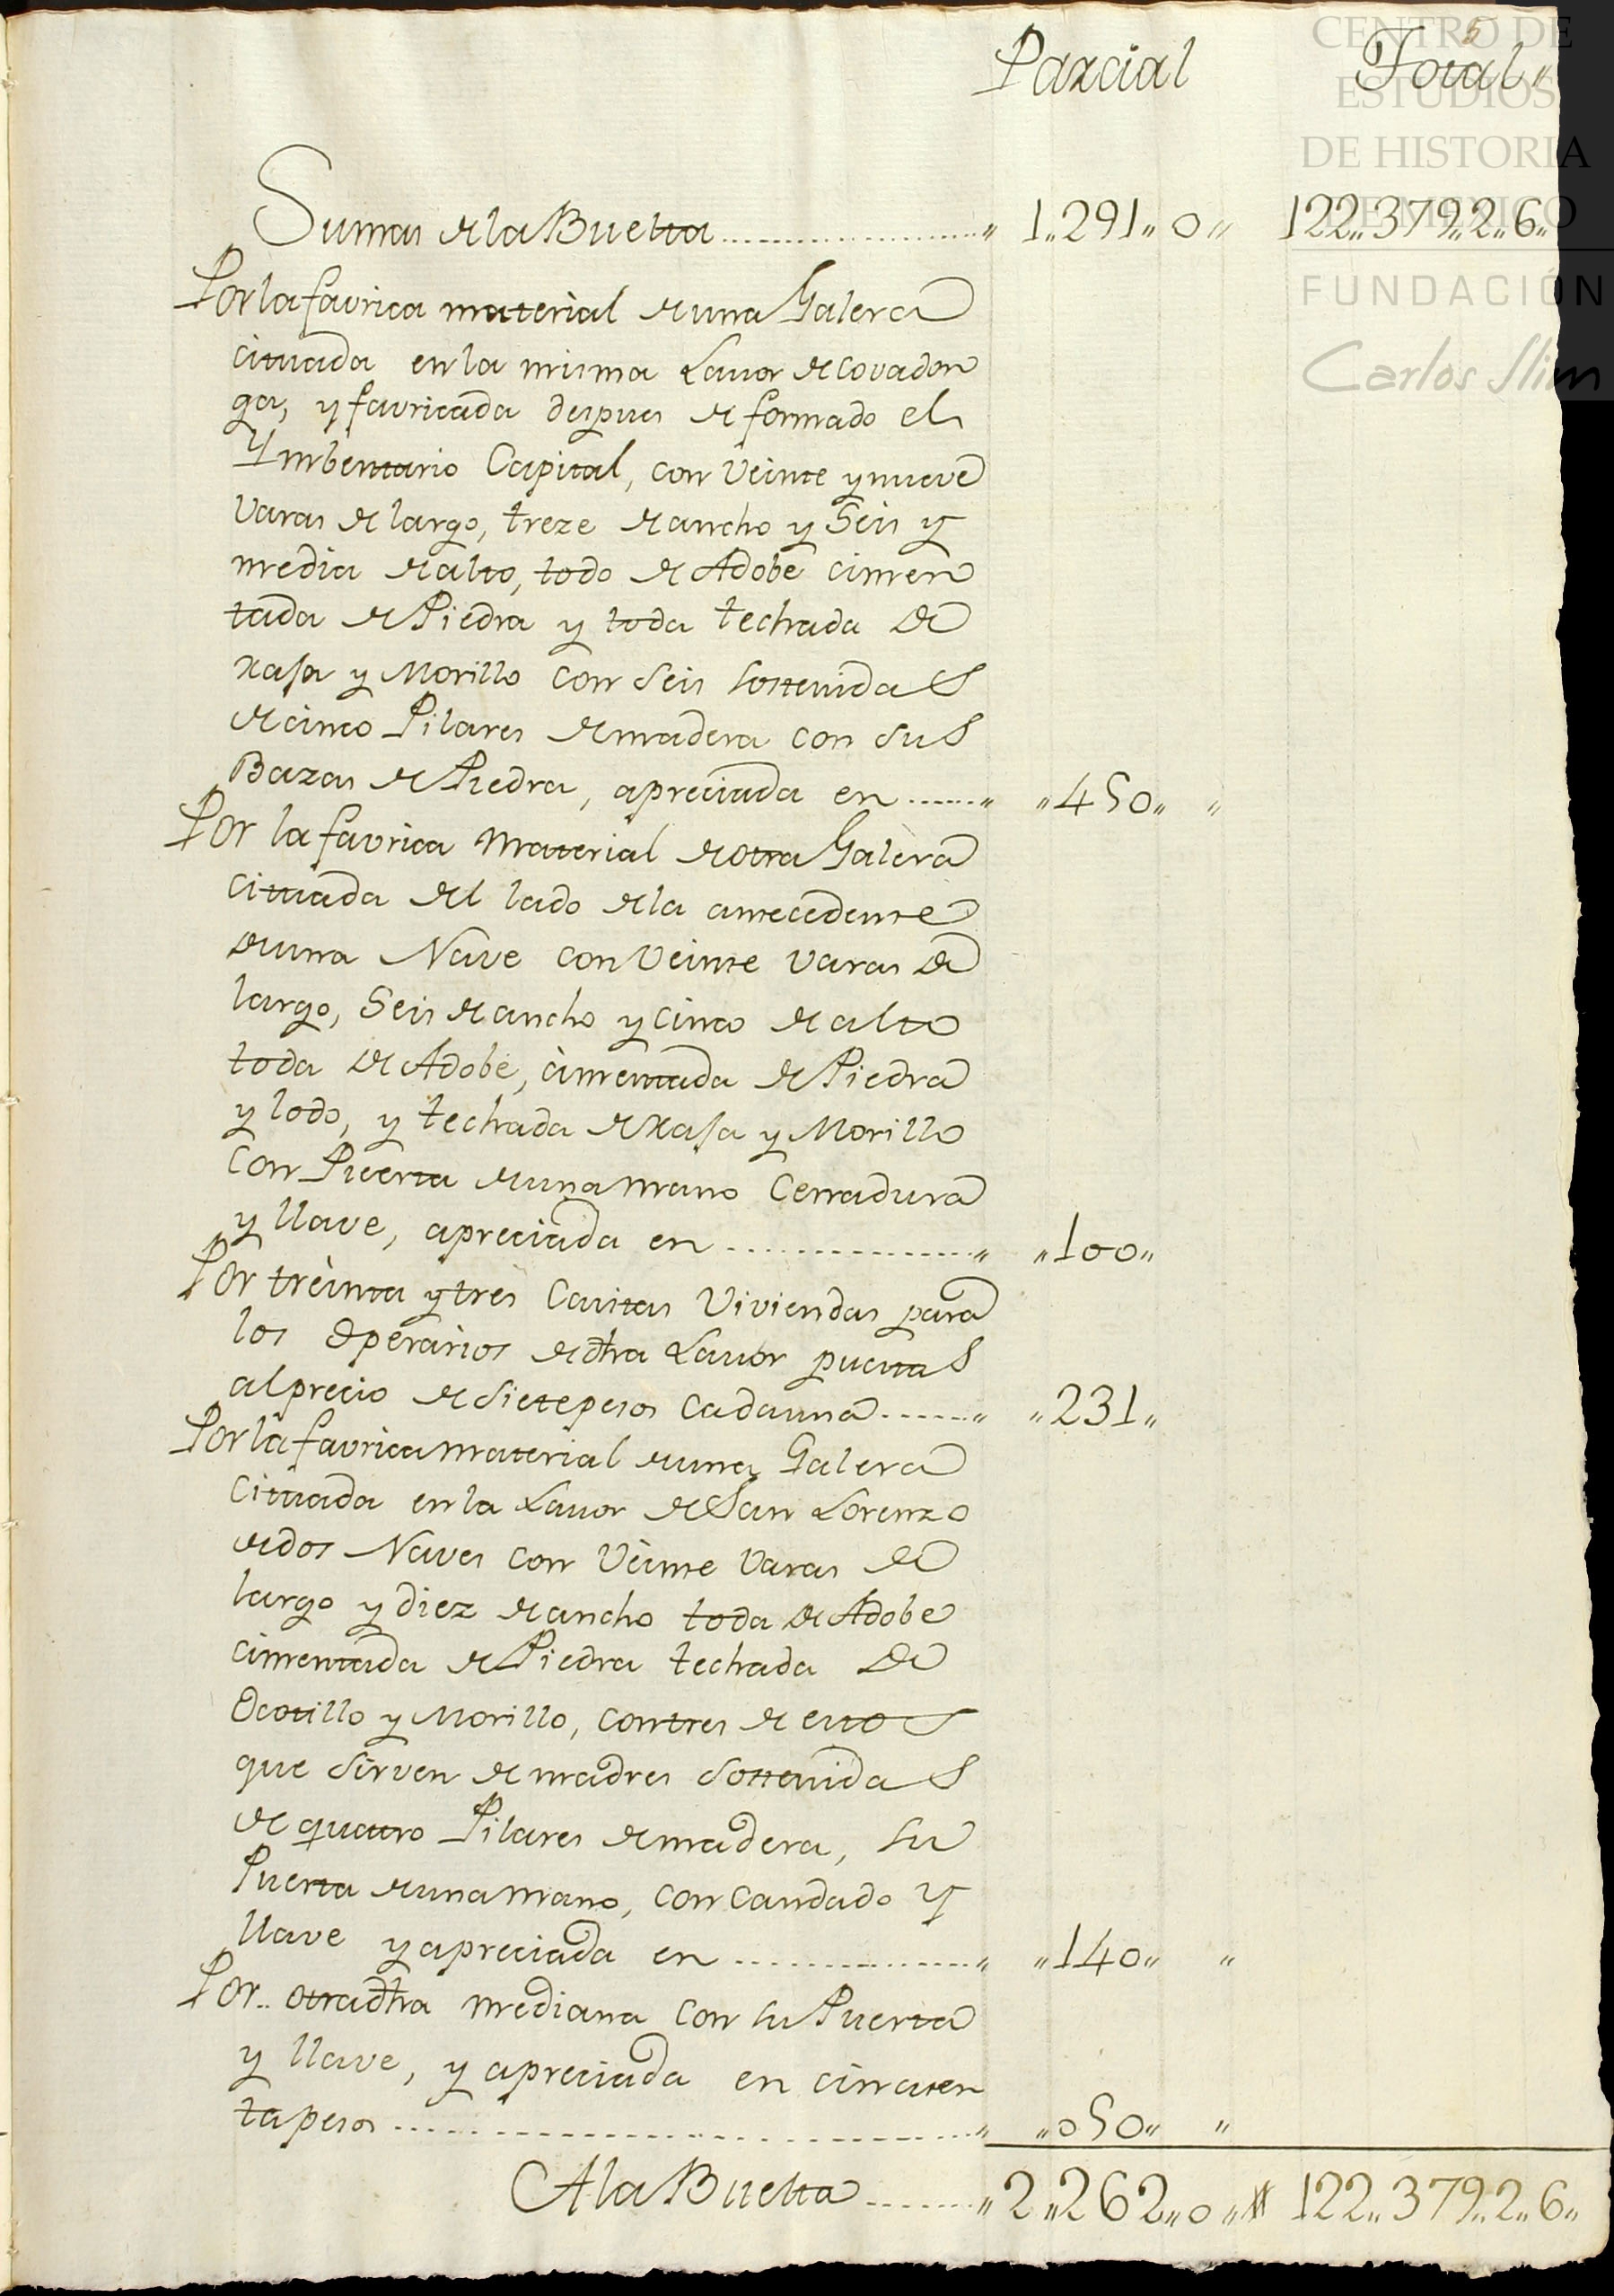 5
Parcial Total"
Sumas de la Buelta "1"291"0" 122"379"2"6"
Por la favrica material de una Galera
cituada en la misma Lavor de Covadon
ga, y favricada despues de formado el
Ymbentario Capital, con Veinte y nueve
Varas de largo, treze de ancho y Seis y
media de alto, todo de Adobe cimen
tada de Piedra y toda techada de
xasa y Morillo con Seis sostenidas
de cinco Pilares de madera con sus
Bazas de Piedra, apreciada en "450" "
Por la favrica Material de otra Galera
cituada del lado de la antecedente
de una Nave con Veinte Varas de
largo, Seis de ancho y cinco de alto
toda de Adobe, cimentada de Piedra
y lodo, y techada de xasa y Morillo
con Puerta de una mano Cerradura
y llave, apreciada en "100"
Por treinta y tres Casitas Viviendas para
los Operarios de dtra Lavor puestas
al precio de Siete pesos cada una "231"
Por la favrica material de una Galera
cituada en la Lavor de San Lorenzo
de dos Naves con Veinte Varas de
largo y diez de ancho toda de Adobe
cimentada de Piedra techada de
Ocotillo y Morillo, con tres de estos
que sirven de madres sostenidas
de quatro Pilares de madera, su
Puerta de una mano, con Candado y
llave y apreciada en "140" "
Por otra dtra mediana con su Puerta
y llave, y apreciada en cincuen
ta pesos "050" "
A la Buelta "2"262"0" 122"379"2"6"
CENTRO DE
ESTUDIOS
DE HISTORIA
DE MÉXICO
FUNDACIÓN
Carlos Slim